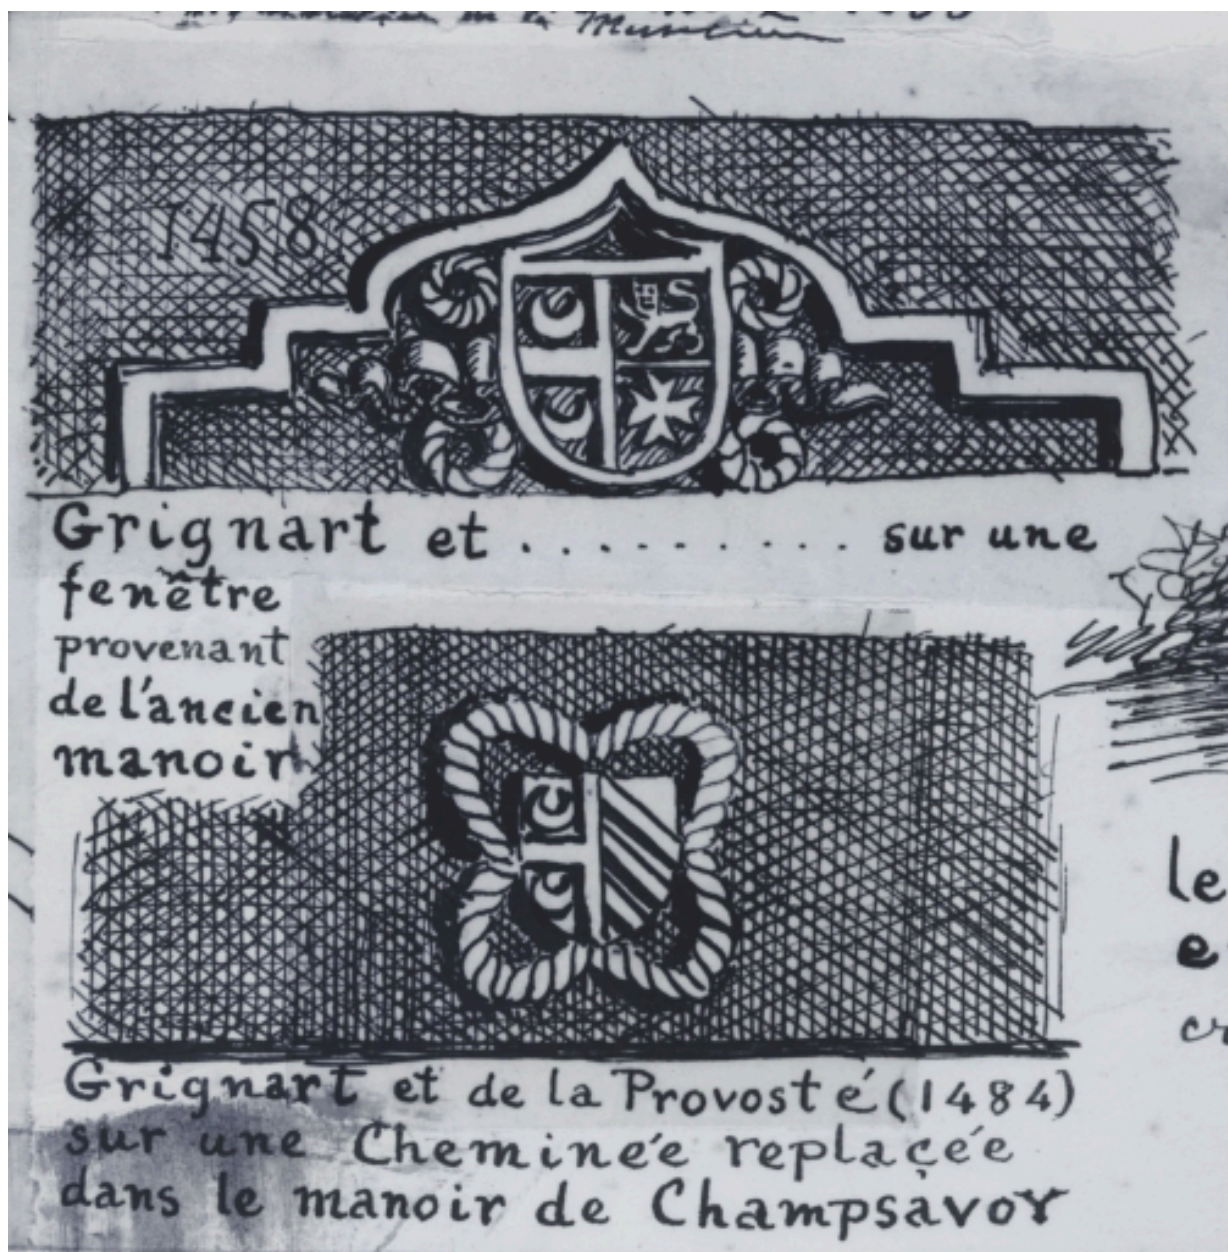 1458
Grignart et .......... sur une
fenêtre
provenant
de l'ancien
manoir
le
e
Grignart et de la Provosté (1484)
sur une Cheminée replaçée
dans le manoir de Champsavoy